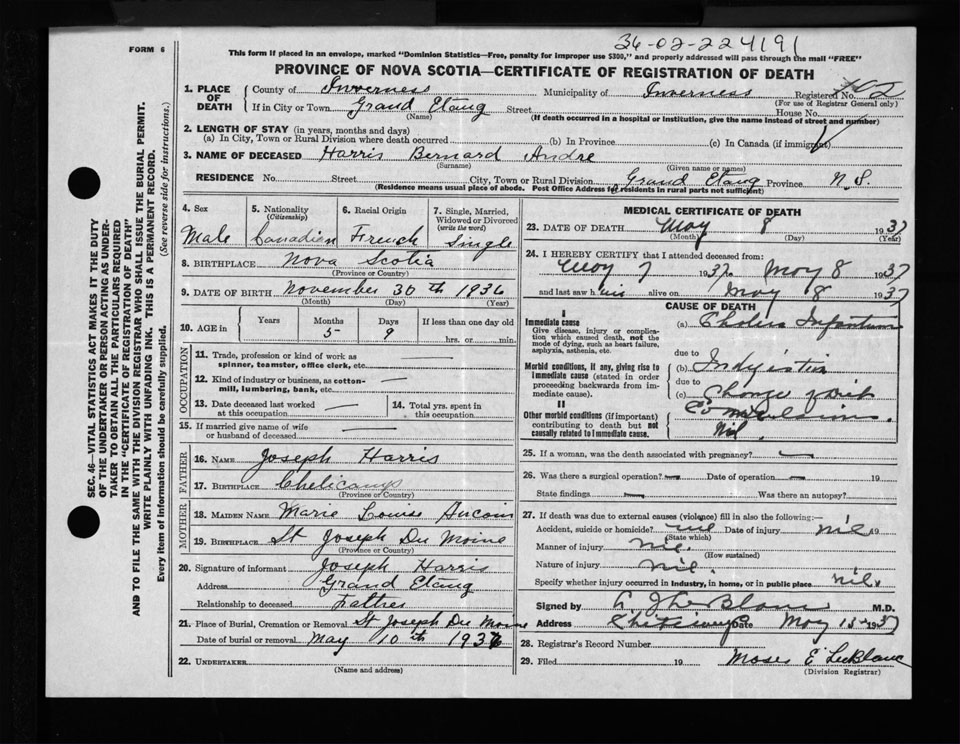 36-02-224191
FORM 6
This form if placed in an envelope, marked "Dominion Statistics—Free, penalty for improper use $300," and properly addressed will pass through the mail "FREE"
PROVINCE OF NOVA SCOTIA—CERTIFICATE OF REGISTRATION OF DEATH
SEC. 46—VITAL STATISTICS ACT MAKES IT THE DUTY
OF THE UNDERTAKER OR PERSON ACTING AS UNDER-
TAKER TO OBTAIN ALL THE PARTICULARS REQUIRED
IN THE "CERTIFICATE OF REGISTRATION OF DEATH"
AND TO FILE THE SAME WITH THE DIVISION REGISTRAR WHO SHALL ISSUE THE BURIAL PERMIT.
WRITE PLAINLY WITH UNFADING INK. THIS IS A PERMANENT RECORD.
Every item of information should be carefully supplied. (See reverse side for instructions.)
1. PLACE OF DEATH County of Inverness Municipality of Inverness Registered No.
(For use of Registrar General only)
If in City or Town Grand Etang Street House No.
(Name) (If death occurred in a hospital or institution, give the name instead of street and number)
2. LENGTH OF STAY (in years, months and days)
(a) In City, Town or Rural Division where death occurred (b) In Province (c) In Canada (if immigrant)
3. NAME OF DECEASED Harris Bernard Andre
(Surname) (Given name or names)
RESIDENCE No. Street City, Town or Rural Division Grand Etang Province N.S.
(Residence means usual place of abode. Post Office Address for residents in rural parts not sufficient)
4. Sex 5. Nationality (Citizenship) 6. Racial Origin 7. Single, Married, Widowed or Divorced (write the word)
Male Canadien French Single
8. BIRTHPLACE Nova Scotia
(Province or Country)
9. DATE OF BIRTH November 30th 1936
(Month) (Day) (Year)
10. AGE in Years Months Days If less than one day old
5 9 hrs. or min.
OCCUPATION
11. Trade, profession or kind of work as
spinner, teamster, office clerk, etc. —
12. Kind of industry or business, as cotton-
mill, lumbering, bank, etc. —
13. Date deceased last worked
at this occupation — 14. Total yrs. spent in
this occupation
15. If married give name of wife
or husband of deceased —
FATHER
16. NAME Joseph Harris
17. BIRTHPLACE Chelicamp
(Province or Country)
MOTHER
18. MAIDEN NAME Marie Louise Aucoin
19. BIRTHPLACE St Joseph Du Moine
(Province or Country)
20. Signature of informant Joseph Harris
Address Grand Etang
Relationship to deceased Father
21. Place of Burial, Cremation or Removal St Joseph Du Moine
Date of burial or removal May 10th 1937
22. UNDERTAKER
(Name and address)
MEDICAL CERTIFICATE OF DEATH
23. DATE OF DEATH May 8 1937
(Month) (Day) (Year)
24. I HEREBY CERTIFY that I attended deceased from:
May 7 1937 May 8 1937
and last saw him alive on May 8 1937
CAUSE OF DEATH
I
Immediate cause (a) Cholera Infantum
Give disease, injury or complica-
tion which caused death, not the
mode of dying, such as heart failure,
asphyxia, asthenia, etc. due to
Morbid conditions, if any, giving rise to (b) Indigestion
immediate cause (stated in order
proceeding backwards from im-
mediate cause). due to
(c) Change
II
Other morbid conditions (if important)
contributing to death but not
causally related to immediate cause. Convulsions
Nil.
25. If a woman, was the death associated with pregnancy? —
26. Was there a surgical operation? — Date of operation — 19
State findings — Was there an autopsy?
27. If death was due to external causes (violence) fill in also the following:—
Accident, suicide or homicide? nil Date of injury nil 19
(State which)
Manner of injury nil.
(How sustained)
Nature of injury nil.
Specify whether injury occurred in industry, in home, or in public place nil.
Signed by L J LeBlanc M.D.
Address Date May 1937
28. Registrar's Record Number
29. Filed 19 Moses E LeBlanc
(Division Registrar)